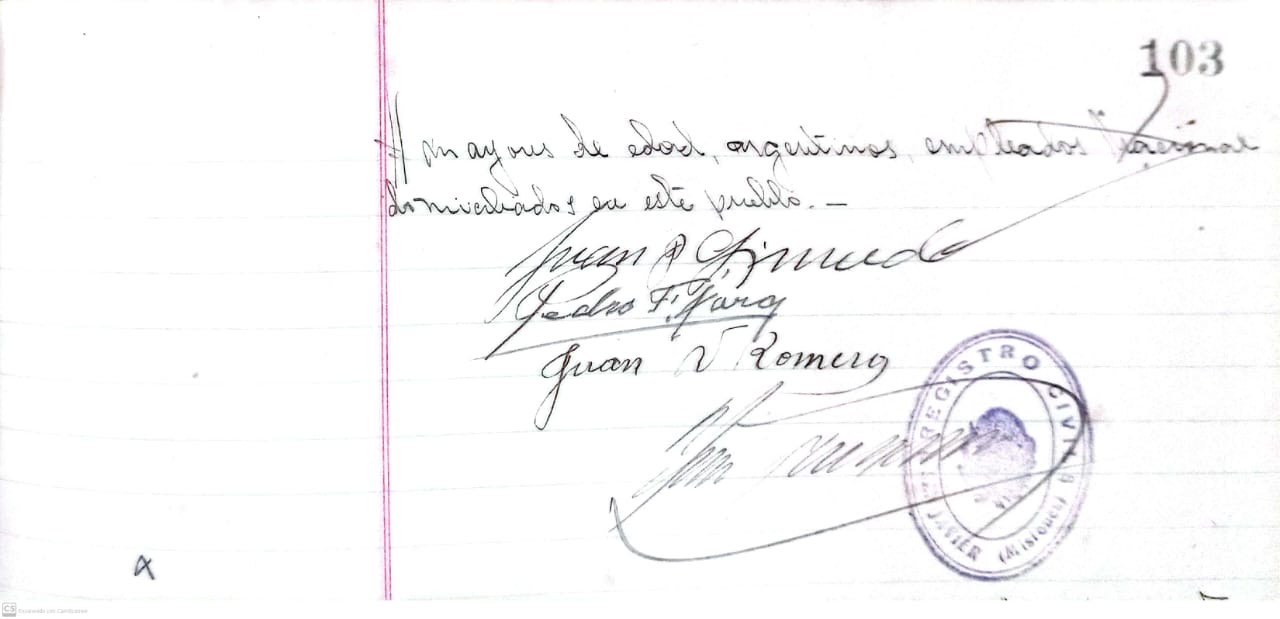 103
mayores de edad, argentinos, empleados
domiciliados en este pueblo. —
Juan
Pedro F.
Juan V Romero
REGISTRO CIVIL
JAVIER (Misiones)
CS Escaneado con CamScanner